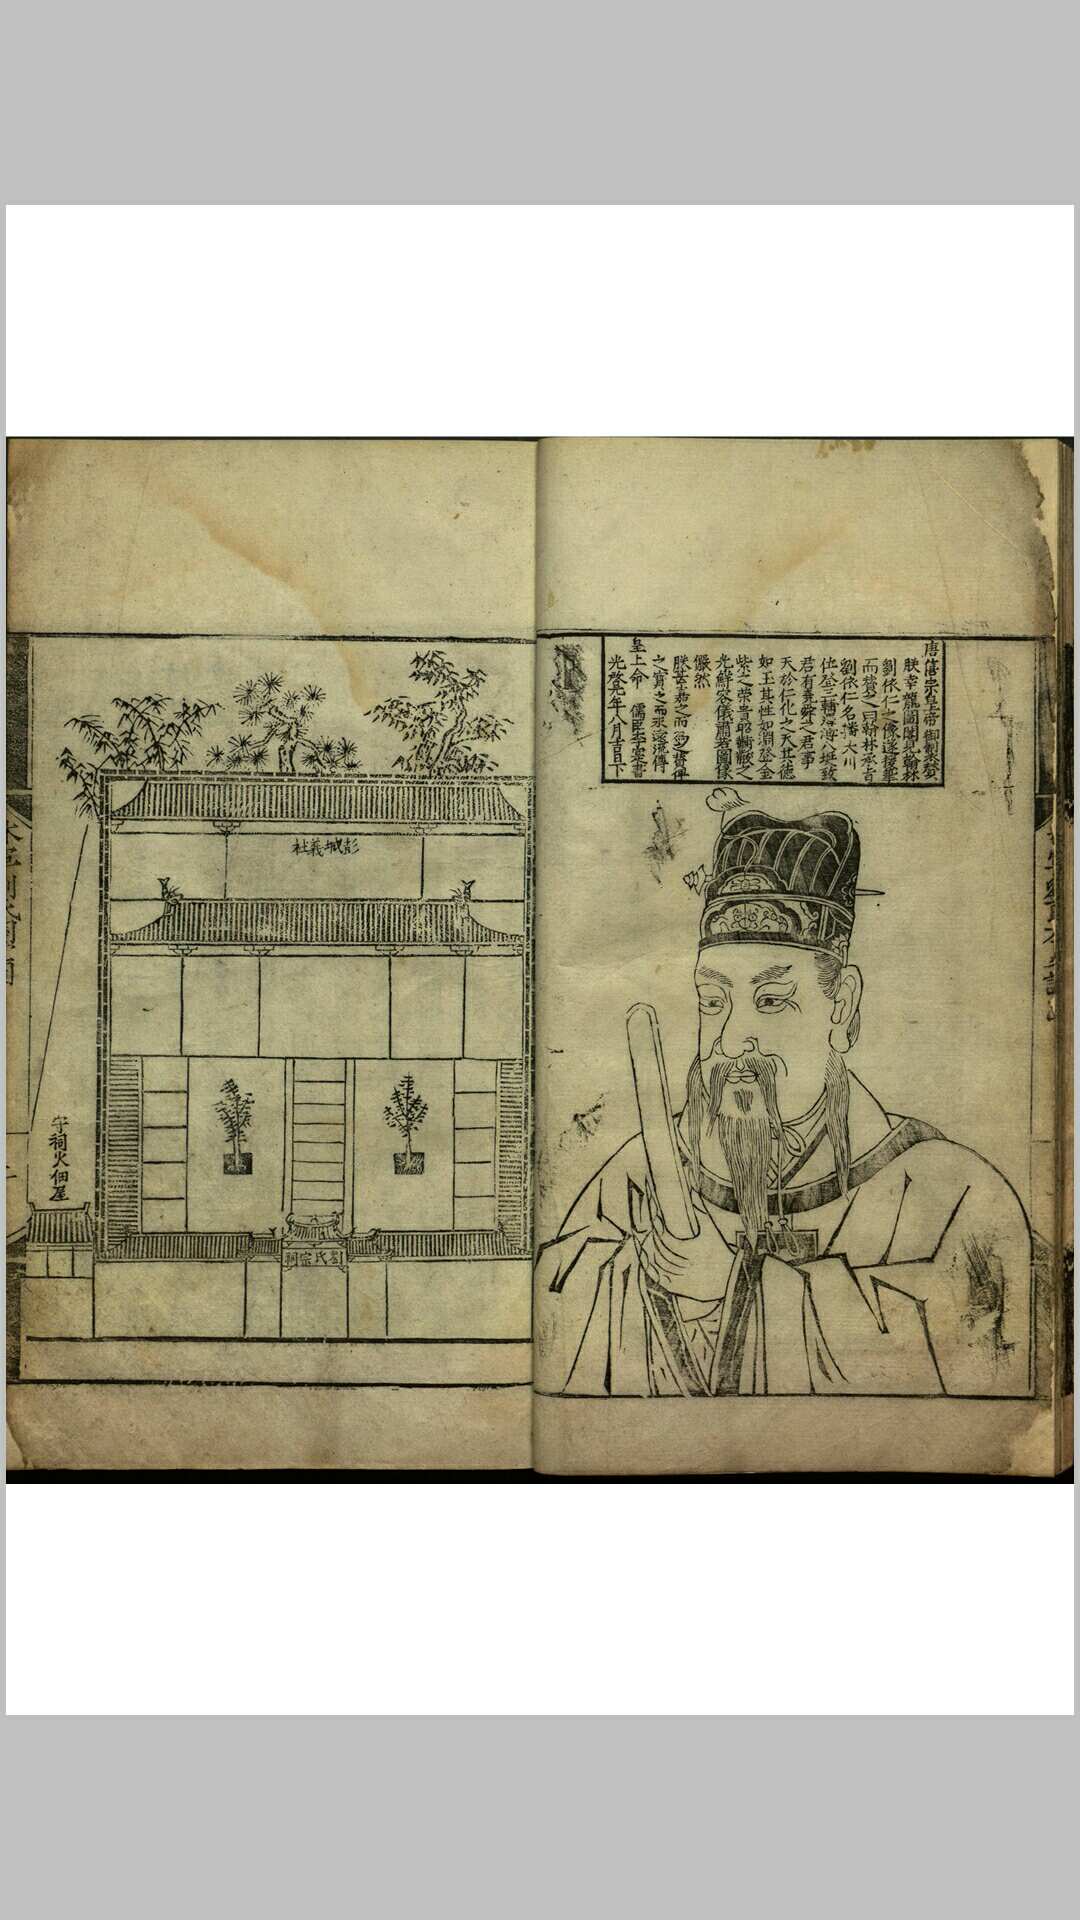 唐僖宗皇帝御製褒贊
朕幸龍圖閣見翰林
劉依仁之像遂援筆
而贊之曰翰林承旨
劉依仁名播大川
位登三輔海八埏致
君有義辭之君事
天於仁化之天其德
如玉其性如淵登金
紫之榮貴耶黼黻之
光鮮容儀肅若圖像
儼然
朕甚嘉之而為之贊俾
之寶之而永遠流傳
皇上命 儒臣李 書
光啟元年八月吉日下
彭城義社
劉氏宗祠
守祠火佃屋